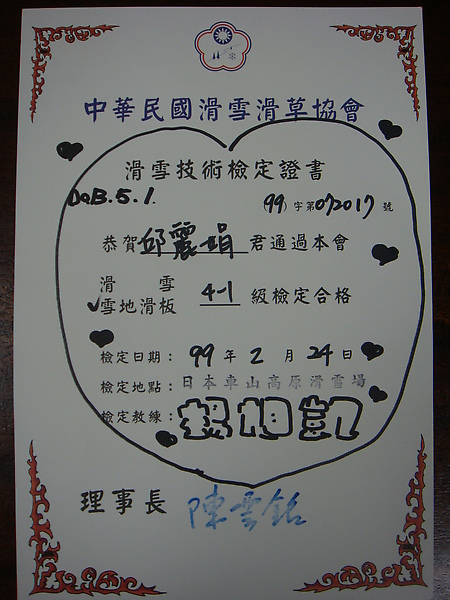 中華民國滑雪滑草協會
滑雪技術檢定證書
DoB.5.1.
99)字第072017號
恭賀邱麗娟君通過本會
滑雪
✓雪地滑板 4-1 級檢定合格
檢定日期：99年2月24日
檢定地點：日本車山高原滑雪場
檢定教練：楊栢凱
理事長 陳雲銘